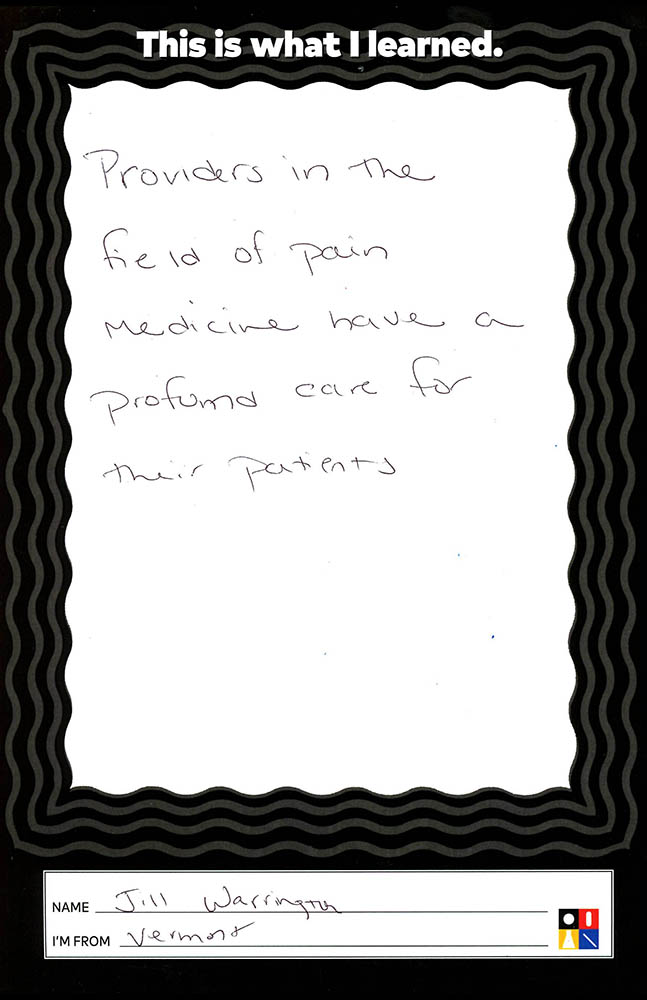 This is what I learned.
Providers in the
field of pain
Medicine have a
profound care for
their patients
NAME Jill Warrington
I'M FROM Vermont